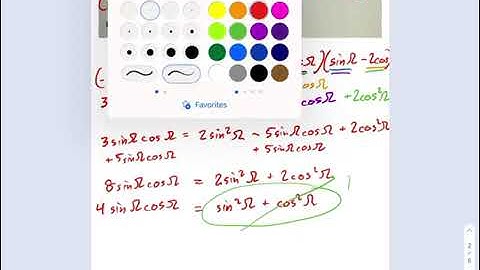 (sinΩ - 2cos
cosΩ + 2cos²Ω
Favorites
3sinΩcosΩ = 2sin²Ω - 5sinΩcosΩ + 2cos²Ω
+ 5sinΩcosΩ + 5sinΩcosΩ
8sinΩcosΩ = 2sin²Ω + 2cos²Ω
4sinΩcosΩ = sin²Ω + cos²Ω